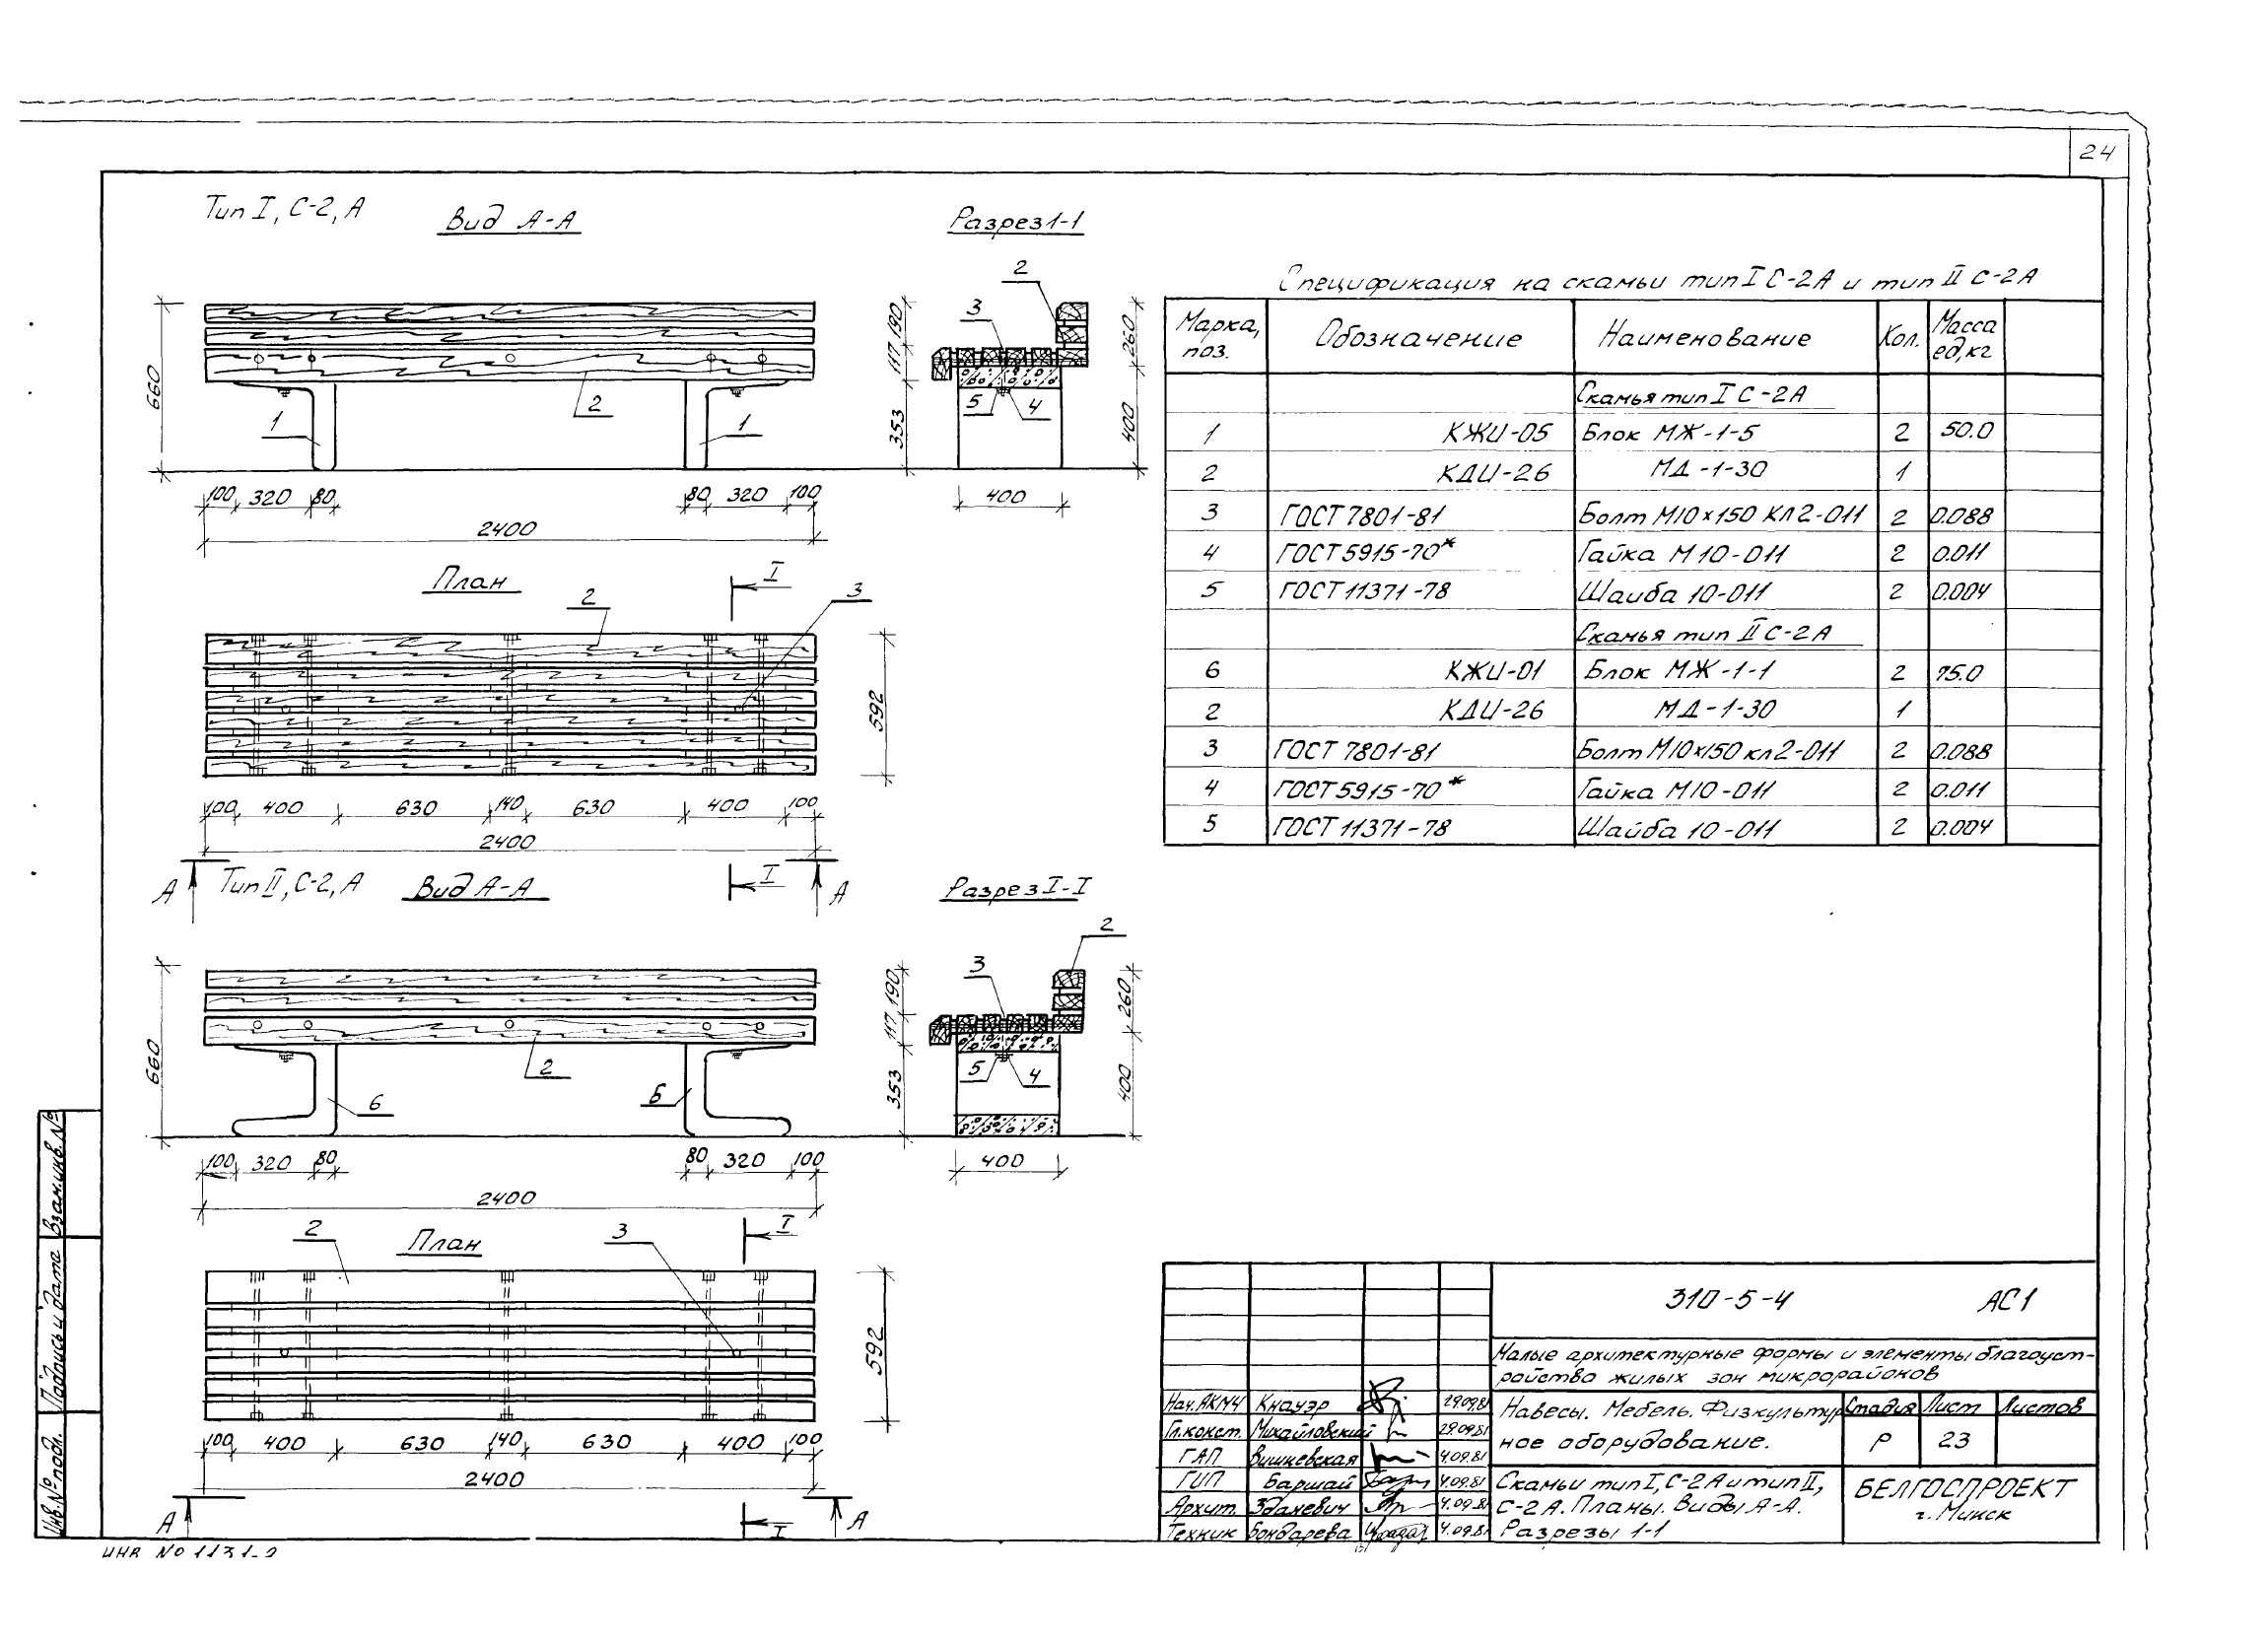 24
Тип I, С-2, А
Вид А-А
Разрез 1-1
660
1
2
1
100 320 80
80 320 100
2400
2
3
5
4
190
117
353
260
400
400
План
I
2
3
592
100 400 630 140 630 400 100
2400
А
I
А
Тип II, С-2, А
Вид А-А
Разрез I-I
660
6
2
Б
100 320 80
80 320 100
2400
2
3
5
4
190
117
353
260
400
400
План
I
2
3
592
100 400 630 140 630 400 100
2400
А
I
А
Спецификация на скамьи тип I С-2А и тип II С-2А
Марка, поз. Обозначение Наименование Кол. Масса ед,кг
Скамья тип I С-2А
1 КЖИ-05 Блок МЖ-1-5 2 50.0
2 КДИ-26 МД-1-30 1
3 ГОСТ 7801-81 Болт М10х150 КЛ2-011 2 0.088
4 ГОСТ 5915-70* Гайка М10-011 2 0.011
5 ГОСТ 11371-78 Шайба 10-011 2 0.004
Скамья тип II С-2А
6 КЖИ-01 Блок МЖ-1-1 2 75.0
2 КДИ-26 МД-1-30 1
3 ГОСТ 7801-81 Болт М10х150 кл2-011 2 0.088
4 ГОСТ 5915-70* Гайка М10-011 2 0.011
5 ГОСТ 11371-78 Шайба 10-011 2 0.004
310-5-4 АС1
Малые архитектурные формы и элементы благоуст-
ройства жилых зон микрорайонов
Нач.АКМ4 Кнауэр 29.09.81
Гл.конст. Михайловский 29.09.81
ГАП Вишневская 4.09.81
ГИП Баршай 4.09.81
Архит. Зданевич 4.09.81
Техник Бондарева 4.09.81
Навесы. Мебель. Физкультур
ное оборудование.
Стадия Лист Листов
Р 23
Скамьи тип I, С-2А и тип II,
С-2А. Планы. Виды А-А.
Разрезы 1-1
БЕЛГОСПРОЕКТ
г. Минск
Взам.инв.№
Подпись и дата
Инв.№ подл.
ИНВ NO 1131-2